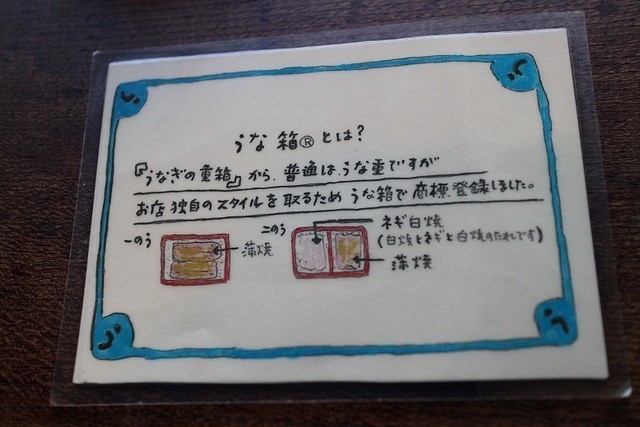 うな箱®とは?
『うなぎの重箱』から、普通は、うな重ですが
お店独自のスタイルを取るため うな箱で商標登録しました。
一のう
蒲焼
二のう
ネギ白焼
(白焼とネギと白焼のたれです)
蒲焼